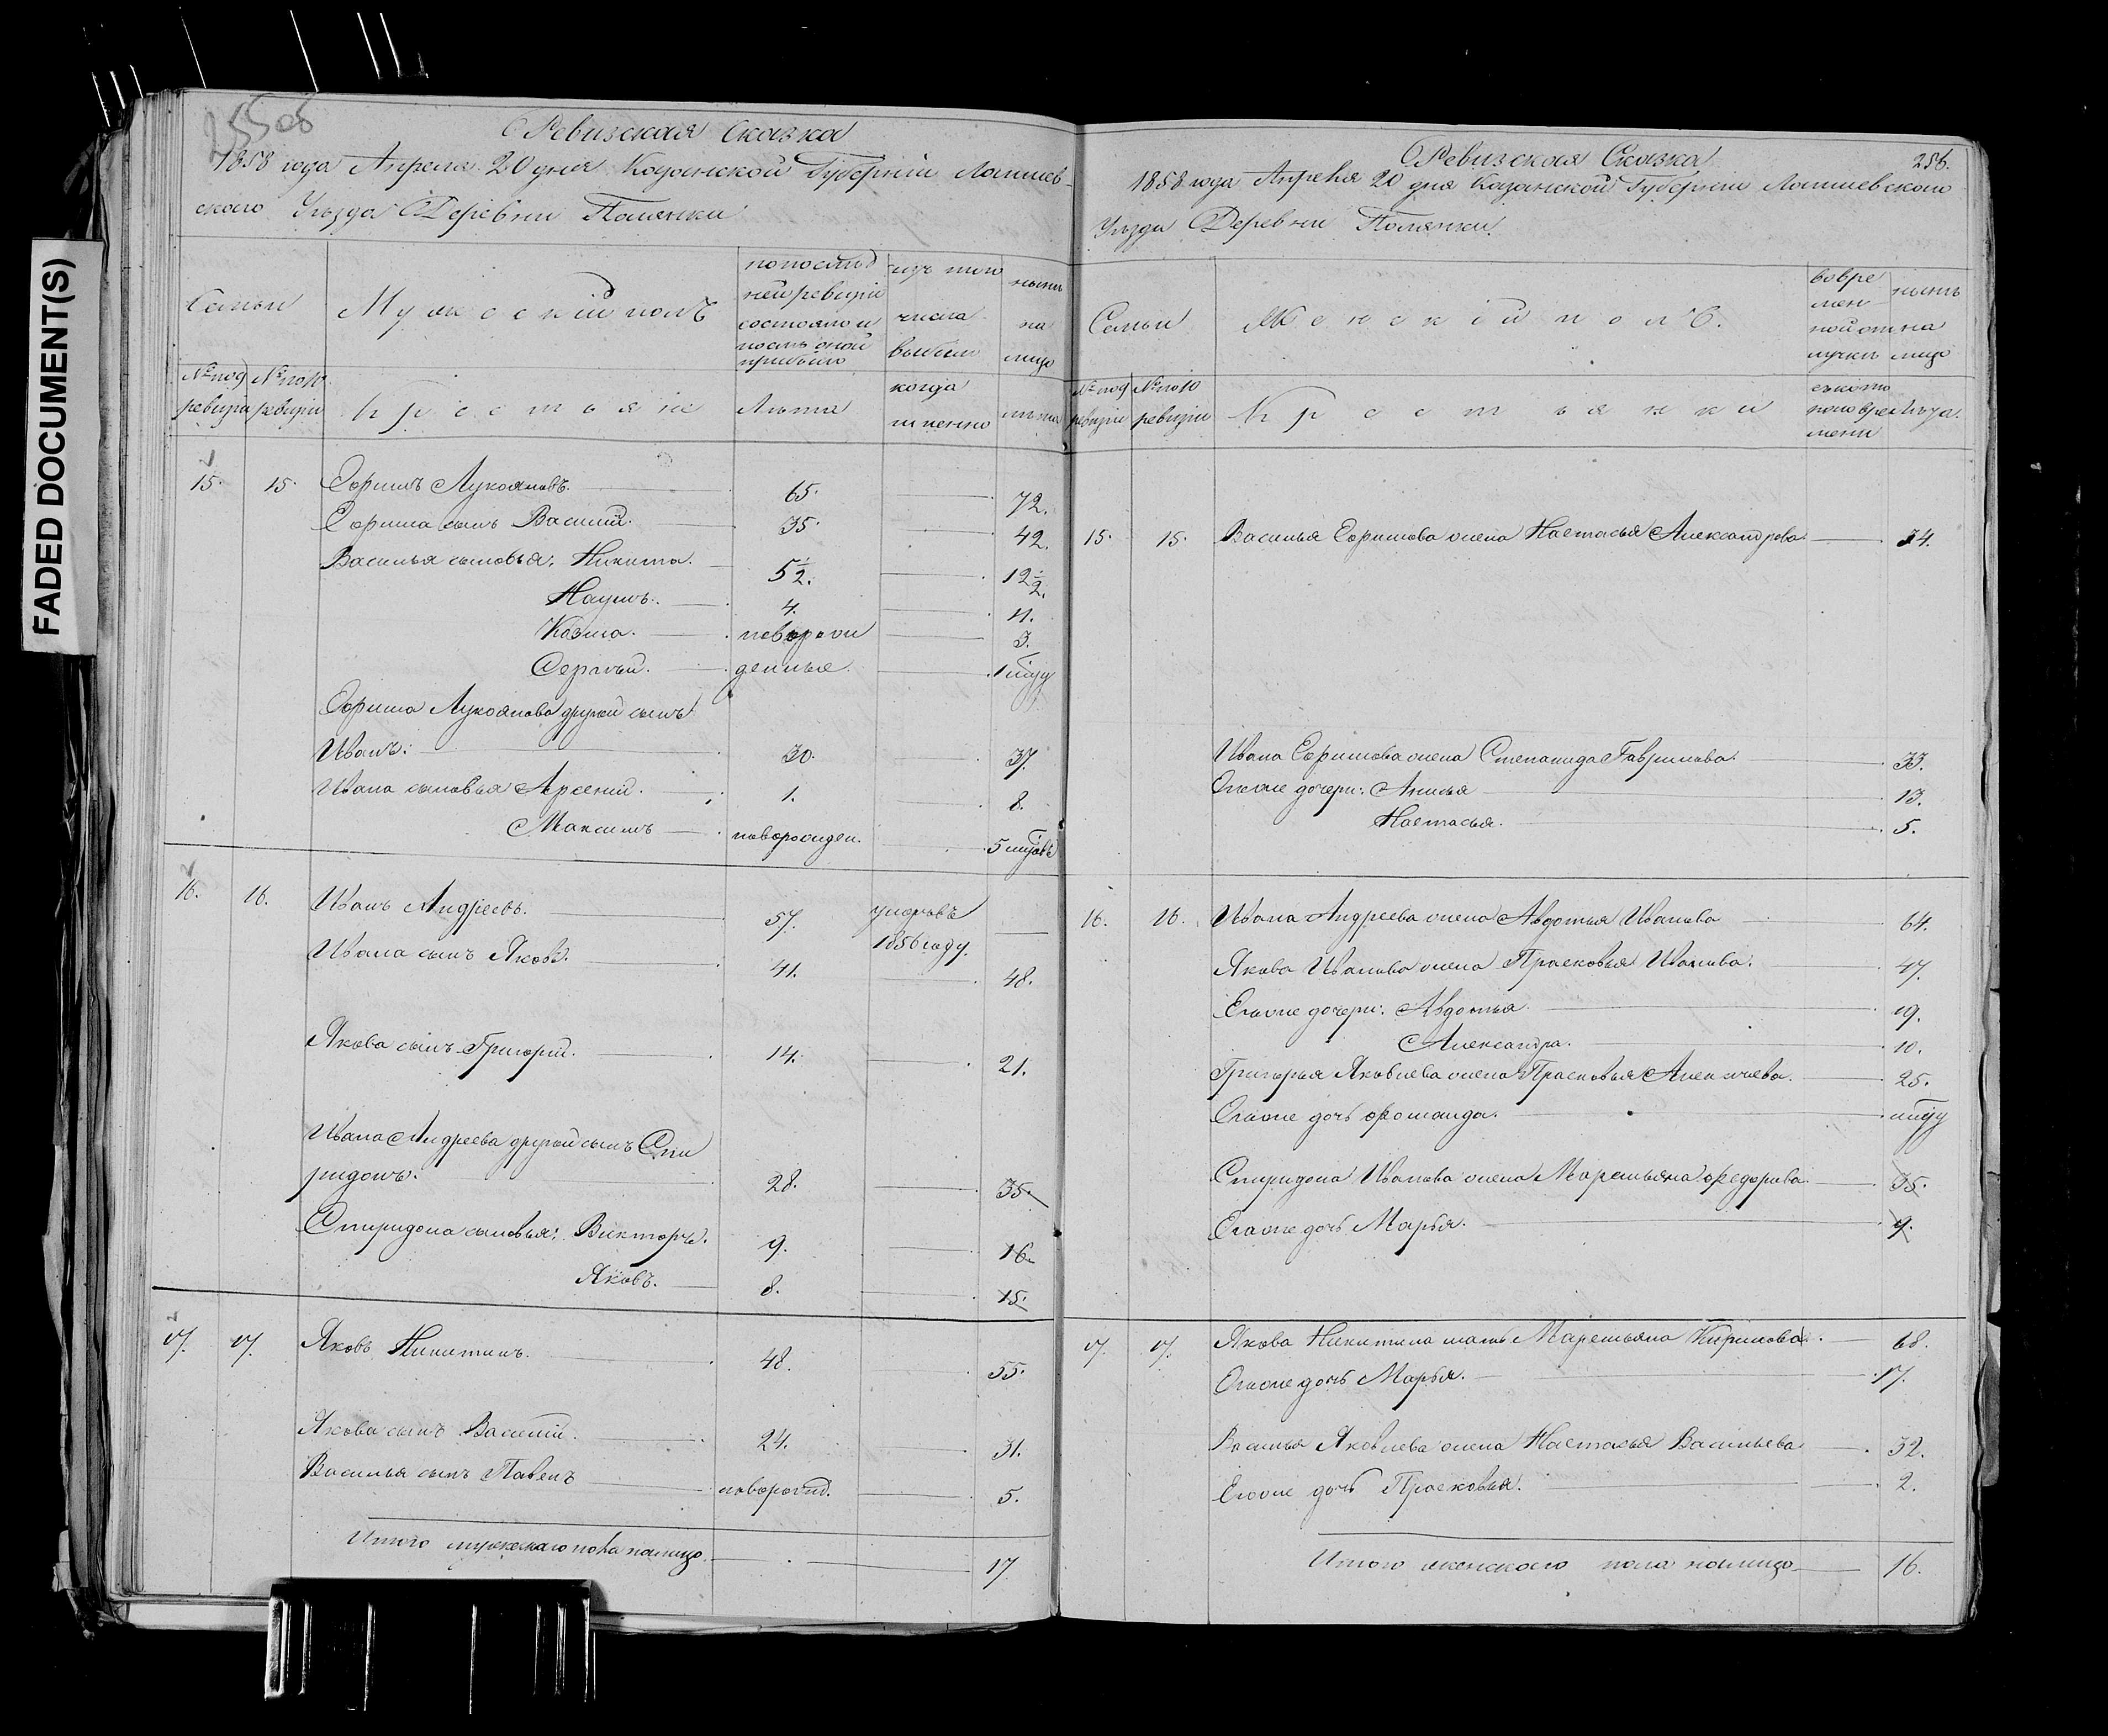 FADED DOCUMENT(S)
255об
Ревизская Сказка
1858 года Апреля 20 дня Казанской Губернiи Лаишев-
скаго Уѣзда Деревни Полянки
Семьи
Мужескiй полъ
по послѣд
ней ревизiи
состояло и
послѣ оной
прибыло
изъ того
числа
выбыло
нынѣ
на
лицо
№ по 9
ревизiи
№ по 10
ревизiи
Крестьяне
Лѣта
когда
именно
лѣта
15. 15. Ефимъ Лукояновъ. 65. 72.
Ефима сынъ Василiй. 35. 42.
Василья сыновья: Никита. 5 1/2. 12 1/2.
Наумъ. 4. 11.
Козма. новорож 3.
Сергѣй. денные. 1 году
Ефима Лукоянова другой сынъ
Иванъ. 30. 37.
Ивана сыновья Арсенiй. 1. 8.
Максимъ новорожден. 5 мцовъ
16. 16. Иванъ Андреевъ. 57. умеръ въ
1856 году.
Ивана сынъ Яковъ. 41. 48.
Якова сынъ Григорiй. 14. 21.
Ивана Андреева другой сынъ Спи
ридонъ. 28. 35.
Спиридона сыновья: Викторъ. 9. 16.
Яковъ. 8. 15.
17. 17. Яковъ Никитинъ. 48. 55.
Якова сынъ Василiй. 24. 31.
Василья сынъ Павелъ новорожд. 5.
Итого мужескаго пола на лицо 17
Ревизская Сказка 256.
1858 года Апреля 20 дня Казанской Губернiи Лаишевскаго
Уѣзда Деревни Полянки.
Семьи
Женскiй полъ.
во вре
мен
ной от
лучкѣ
нынѣ
на
лицо
№ по 9
ревизiи
№ по 10
ревизiи
Крестьянки
съ кото
раго вре
мени
Лѣта.
15. 15. Василья Ефимова жена Настасья Александрова 34.
Ивана Ефимова жена Степанида Гаврилова. 33.
Его же дочери: Анисья 13.
Настасья. 5.
16. 16. Ивана Андреева жена Авдотья Иванова 64.
Якова Иванова жена Прасковья Иванова. 47.
Его же дочери: Авдотья 19.
Александра. 10.
Григорья Яковлева жена Прасковья Алексѣева. 25.
Его же дочь 1 году
Спиридона Иванова жена Маремьяна Федорова 35.
Его же дочь Марья. 9.
17. 17. Якова Никитина мать Маремьяна Кирилова. 68.
Его же дочь Марья. 17.
Василья Яковлева жена Настасья Васильева 32.
Его же дочь Прасковья. 2.
Итого женскаго пола на лицо 16.